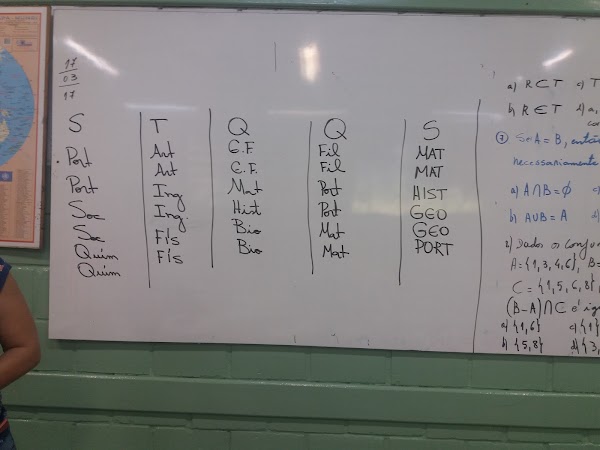 17
03
17
S
Port
Port
Soc
Soc
Quím
Quím
T
Art
Art
Ing
Ing.
Fís
Fís
Q
E.F.
E.F.
Mat
Hist
Bio
Bio
Q
Fil
Fil
Port
Port
Mat
Mat
S
MAT
MAT
HIST
GEO
GEO
PORT
a) R ⊂ T c) T
b) R ∈ T d) a,
7) Se A = B, então
necessariamente
a) A∩B = ∅ c)
b) A∪B = A d)
Dados os conjun
A = {1,3,4,6}, B =
C = {1,5,6,8},
(B-A)∩C é ig
a) {1,6} c) {1}
b) {5,8} d) {3,